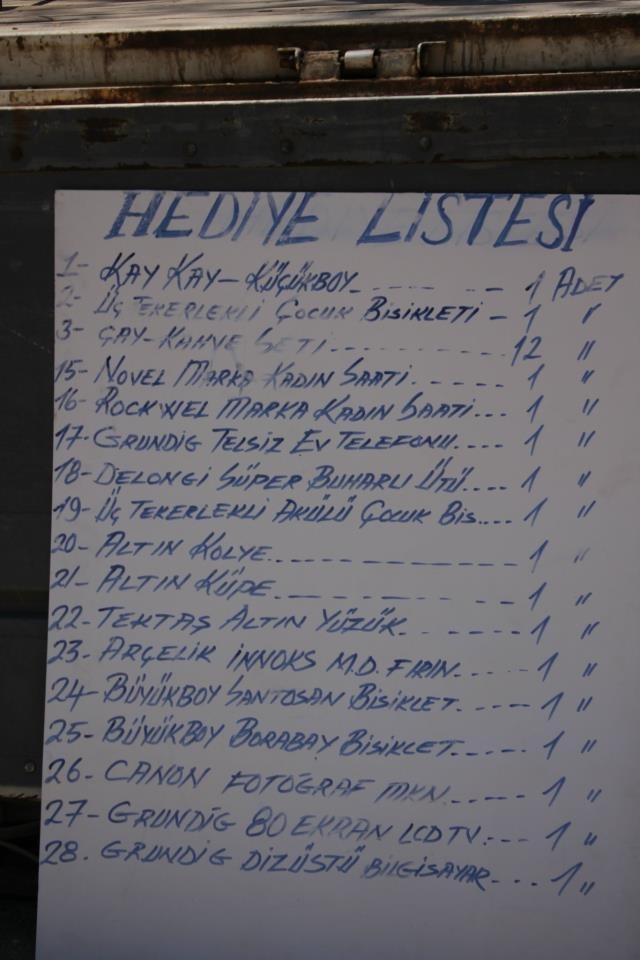 HEDİYE LİSTESİ
1- KAY KAY - KÜÇÜKBOY. ---- -- 1 ADET
2- ÜÇ TEKERLEKLİ ÇOCUK BİSİKLETİ - 1 "
3- ÇAY-KAHVE SETİ ------------ 12 "
15- NOVEL MARKA KADIN SAATİ. ----- 1 "
16- ROCKWEL MARKA KADIN SAATİ... 1 "
17- GRUNDİG TELSİZ EV TELEFONU.---- 1 "
18- DELONGİ SÜPER BUHARLI ÜTÜ.---- 1 "
19- ÜÇ TEKERLEKLİ AKÜLÜ ÇOCUK BİS.... 1 "
20- ALTIN KOLYE.-------------- 1 "
21- ALTIN KÜPE.-------- -- -- 1 "
22- TEKTAŞ ALTIN YÜZÜK. ------- 1 "
23- ARÇELİK İNNOKS M.D. FIRIN.----- 1 "
24- BÜYÜKBOY SANTOSAN BİSİKLET.---- 1 "
25- BÜYÜKBOY BORABAY BİSİKLET.---- 1 "
26- CANON FOTOĞRAF MKN.----- 1 "
27- GRUNDİG 80 EKRAN LCD TV.--- 1 "
28. GRUNDİG DİZÜSTÜ BİLGİSAYAR.--- 1 "